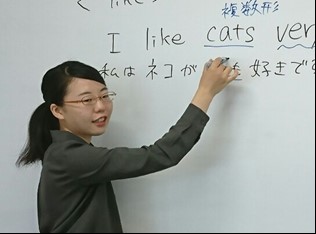 く like
複数形
I like cats ver
私はネコが を 好きで